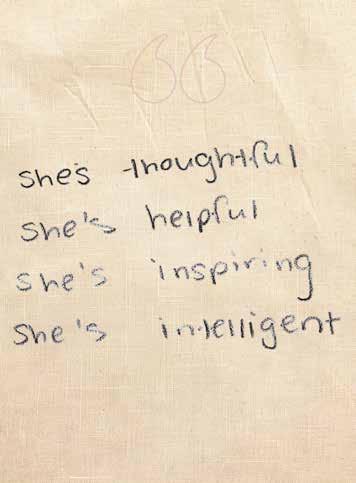 she's thoughtful
she's helpful
she's inspiring
she's intelligent